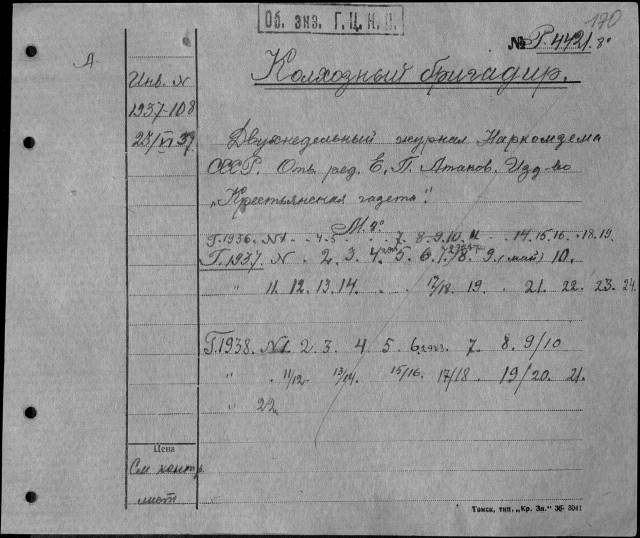 Об. экз. Г.Ц.К.П.
170
№ Р.4421.8°
А
Колхозный бригадир.
Инв. N
1937-108
23/VI 37.
Двухнедельный журнал Наркомзема
СССР. Отв. ред. Е. П. Атаков. Изд-во
„Крестьянская газета".
М. 8°
Г.1936. N1 . . 4.5 . . 7. 8.9.10. 11 . . 14.15.16. . 18.19.
Г.1937. N . 2. 3. 4. 5. 6. 7. 8. 9. (май) 10.
" 11. 12. 13. 14. . . 17/18. 19. . 21. 22. 23. 24.
Г.1938. N1. 2. 3. 4. 5. 6. 7. 8. 9/10
" . 11/12. 13/14. 15/16. 17/18. 19/20. 21.
" 22.
Цена
См контр.
лист
Томск, тип. „Кр. Зн." 36- 3041